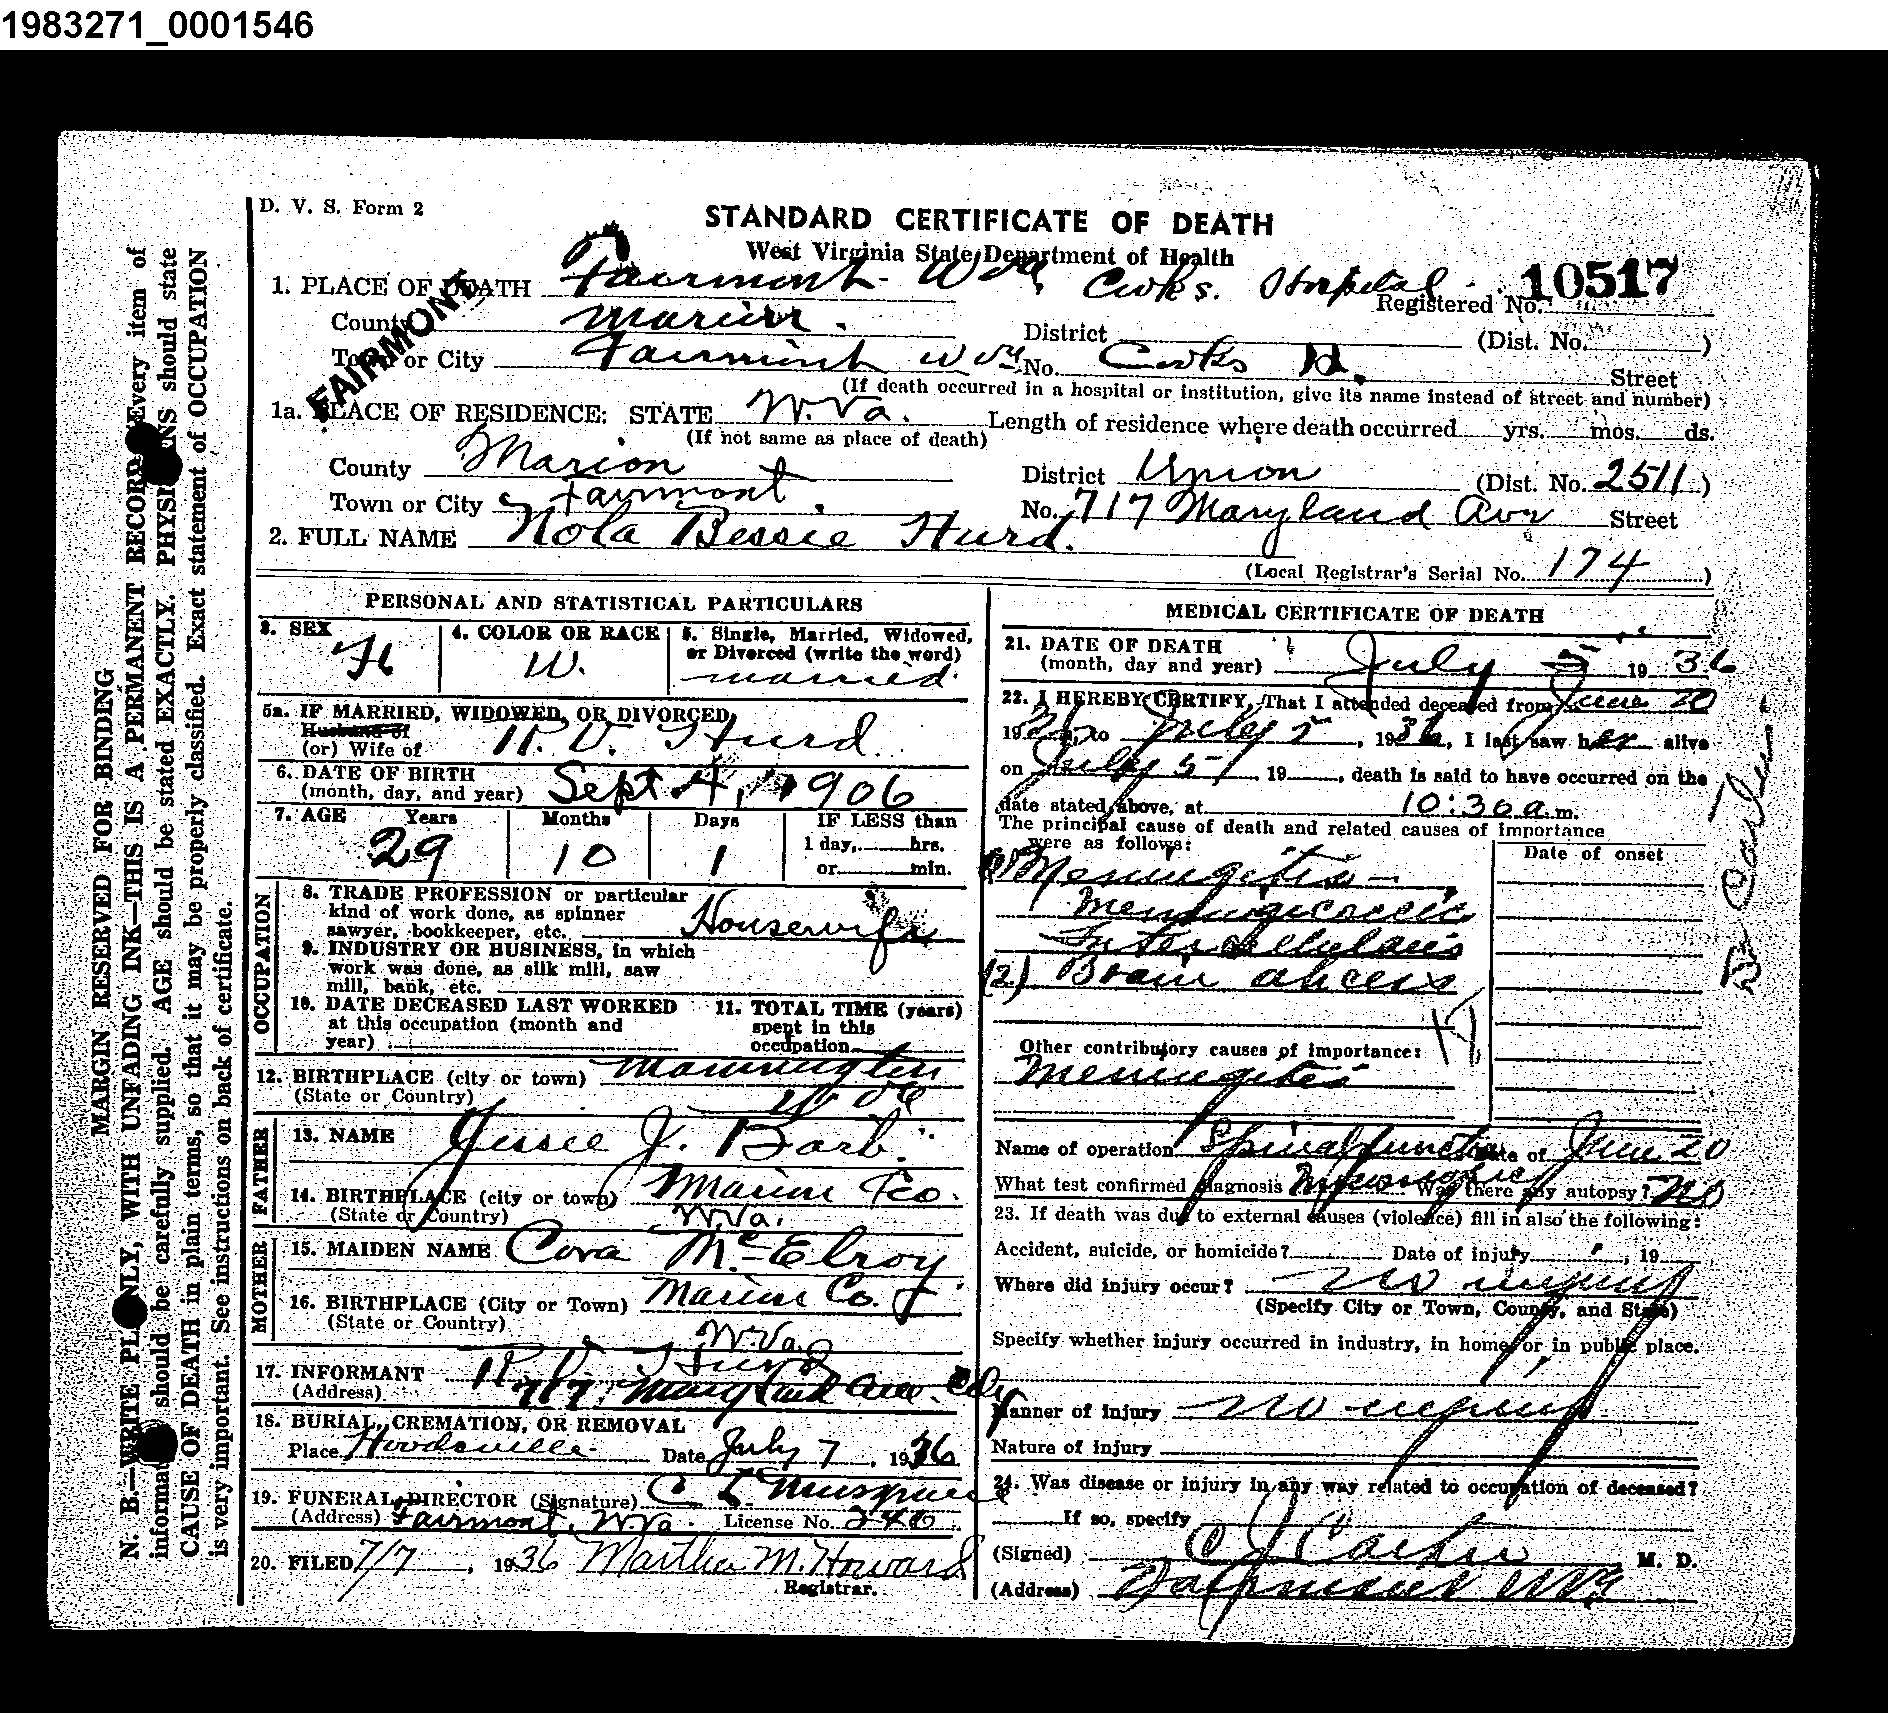 1983271_0001546
D. V. S. Form 2
STANDARD CERTIFICATE OF DEATH
West Virginia State Department of Health
1. PLACE OF DEATH Fairmont W Va. Cooks. Hospital. Registered No. 10517
FAIRMONT
County Marion. District (Dist. No. )
Town or City Fairmont W Va. No. Cooks H. Street
(If death occurred in a hospital or institution, give its name instead of street and number)
1a. PLACE OF RESIDENCE: STATE W. Va. Length of residence where death occurred yrs. mos. ds.
(If not same as place of death)
County Marion District Union (Dist. No. 2511)
Town or City Fairmont. No. 717 Maryland Ave Street
2. FULL NAME Nola Bessie Hurd.
(Local Registrar's Serial No. 174)
PERSONAL AND STATISTICAL PARTICULARS
3. SEX 4. COLOR OR RACE 5. Single, Married, Widowed, or Divorced (write the word)
W. married.
5a. IF MARRIED, WIDOWED, OR DIVORCED
Husband of
(or) Wife of R. V. Hurd
6. DATE OF BIRTH
(month, day, and year) Sept 4, 1906
7. AGE Years Months Days IF LESS than
29 10 1 1 day, hrs.
or min.
OCCUPATION
8. TRADE PROFESSION or particular
kind of work done, as spinner
sawyer, bookkeeper, etc. Housewife
9. INDUSTRY OR BUSINESS, in which
work was done, as silk mill, saw
mill, bank, etc.
10. DATE DECEASED LAST WORKED
at this occupation (month and
year)
11. TOTAL TIME (years)
spent in this
occupation
12. BIRTHPLACE (city or town) Mannington
(State or Country) W Va
FATHER
13. NAME Jessee J. Barb.
14. BIRTHPLACE (city or town) Marion Co.
(State or Country) W. Va.
MOTHER
15. MAIDEN NAME Cora McElroy
16. BIRTHPLACE (City or Town) Marion Co.
(State or Country) W. Va.
17. INFORMANT R V Hurd
(Address) 717 Maryland Ave. City
18. BURIAL, CREMATION, OR REMOVAL
Place Hoodsville Date July 7, 1936
19. FUNERAL DIRECTOR (Signature) C L Musgrave
(Address) Fairmont, W Va. License No.
20. FILED 7/7, 1936 Martha M. Howard
Registrar.
MEDICAL CERTIFICATE OF DEATH
21. DATE OF DEATH
(month, day and year) July 5 1936
22. I HEREBY CERTIFY, That I attended deceased from June 20
1936, to July 5, 1936, I last saw her alive
on July 5, 19 , death is said to have occurred on the
date stated above, at 10:30 a. m.
The principal cause of death and related causes of importance
were as follows: Date of onset
(1) Meningitis -
Meningicoccic
Inter Cellularis
(2) Brain abcess
Other contributory causes of importance:
Meningitis
Name of operation Spinal Puncture Date of June 20
What test confirmed diagnosis Was there any autopsy? No
23. If death was due to external causes (violence) fill in also the following:
Accident, suicide, or homicide? Date of injury , 19
Where did injury occur? no injury
(Specify City or Town, County, and State)
Specify whether injury occurred in industry, in home, or in public place.
Manner of injury no injury
Nature of injury
24. Was disease or injury in any way related to occupation of deceased?
If so, specify
(Signed) M. D.
(Address) Fairmont W Va
MARGIN RESERVED FOR BINDING
N. B.—WRITE PLAINLY, WITH UNFADING INK—THIS IS A PERMANENT RECORD. Every item of
information should be carefully supplied. AGE should be stated EXACTLY. PHYSICIANS should state
CAUSE OF DEATH in plain terms, so that it may be properly classified. Exact statement of OCCUPATION
is very important. See instructions on back of certificate.